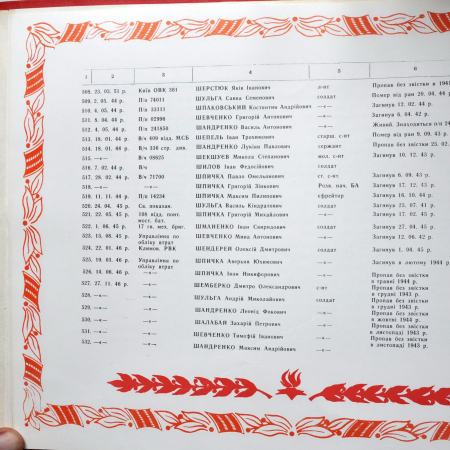 1 2 3 4 5 6
508. 23. 03. 51 р. Київ ОВК 361 ШЕРСТЮК Яків Іванович л-нт Пропав без звістки в 1941
509. 2. 01. 44 р. П/я 74011 ШУЛЬГА Савка Семенович солдат Помер від ран 20. 04. 44
510. 4. 02. 44 р. П/я 33311 ШПАКОВСЬКИЙ Костянтин Андрійович —«— Загинув 12. 02. 44 р.
511. 8. 04. 44 р. П/я 02996 ШЕВЧЕНКО Григорій Антонович —«— Загинув 6. 04. 42 р.
512. 4. 05. 44 р. П/я 241854 ШАНДРЕНКО Василь Антонович —«— Живий. Знаходиться
513. 18. 01. 44 р. В/ч 409 відд. МСБ ШЕПЕЛЬ Іван Трохимович старш. с-нт Помер від ран 9. 09. 43 р.
514. 18. 01. 46 р. В/ч 336 стр. див. ШАНДРЕНКО Лукіян Павлович сержант Пропав без звістки 25. 02.
515. —«— В/ч 09825 ШЕКШУЕВ Микола Степанович мол. с-нт Загинув 10. 12. 43 р.
516. 7. 02. 44 р. В/ч ШИЛОВ Іван Федосійович солдат —«—
517. 28. 02. 44 р. В/ч 71700 ШПИЧКА Павло Омелянович ст. с-нт Загинув 6. 09. 43 р.
518. —«— —«— ШПИЧКА Григорій Зінкович Розв. нач. БА Загинув 17. 12. 43 р.
519. 11. 11. 44 р. П/я 14234 ШПИЧКА Максим Пилипович єфрейтор Загинув 16. 10. 44 р.
520. 24. 04. 45 р. Св. показан. ШУЛЬГА Василь Кіндратович солдат Загинув 23. 02. 45 р.
521. 22. 05. 45 р. 108 відд. понт. ШПИЧКА Григорій Михайлович —«— Загинув 17. 02. 41 р.
мост. бат.
522. 1. 06. 45 р. 17 гв. мех. бриг. ШМАНЕНКО Іван Свиридович солдат Загинув 27. 04. 45 р.
523. 13. 08. 45 р. Управлінню по ШЕВЧЕНКО Мина Антонович —«— Загинув 12. 06. 42 р.
обліку втрат
524. 22. 01. 46 р. РВК ШЕНДЕРЕЙ Олексій Дмитрович солдат Загинув 1. 04. 45 р.
525. 19. 03. 46 р. Управлінню по ШПИЧКА Аверьян Юхимович —«— Загинув в лютому 1944
обліку втрат
526. 14. 06. 46 р. —«— ШПИЧКА Іван Никифорович —«— Пропав без звістки
в травні 1944 р.
527. 27. 11. 46 р. —«— ШЕМБЕРКО Дмитро Олександрович с-нт Пропав без звістки
в грудні 1943 р.
528. —«— —«— ШУЛЬГА Андрій Миколайович солдат Пропав без звістки
в грудні 1943 р.
529. —«— —«— ШАНДРЕНКО Леонід Фокович —«— Пропав без звістки
в жовтні 1944 р.
530. —«— —«— ШАЛАБАЙ Захарій Петрович —«— Пропав без звістки
в листопаді 1943 р.
531. —«— —«— ШЕВЧЕНКО Тимофій Іванович —«— Пропав без звістки
в листопаді 1943 р.
532. —«— —«— ШАНДРЕНКО Максим Андрійович —«—